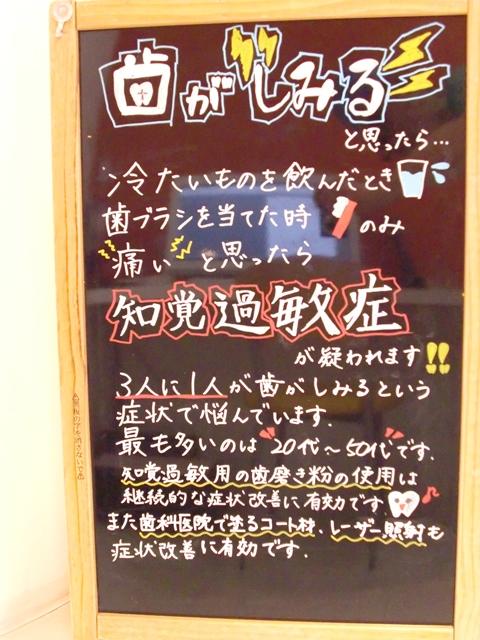 歯がしみる
と思ったら…
冷たいものを飲んだとき
歯ブラシを当てた時 のみ
痛い と思ったら
知覚過敏症
が疑われます!!
3人に1人が歯がしみるという
症状で悩んでいます.
最も多いのは"20代〜50代"です.
知覚過敏用の歯磨き粉の使用は
継続的な症状改善に有効です.
また歯科医院で塗るコート材、レーザー照射も
症状改善に有効です.